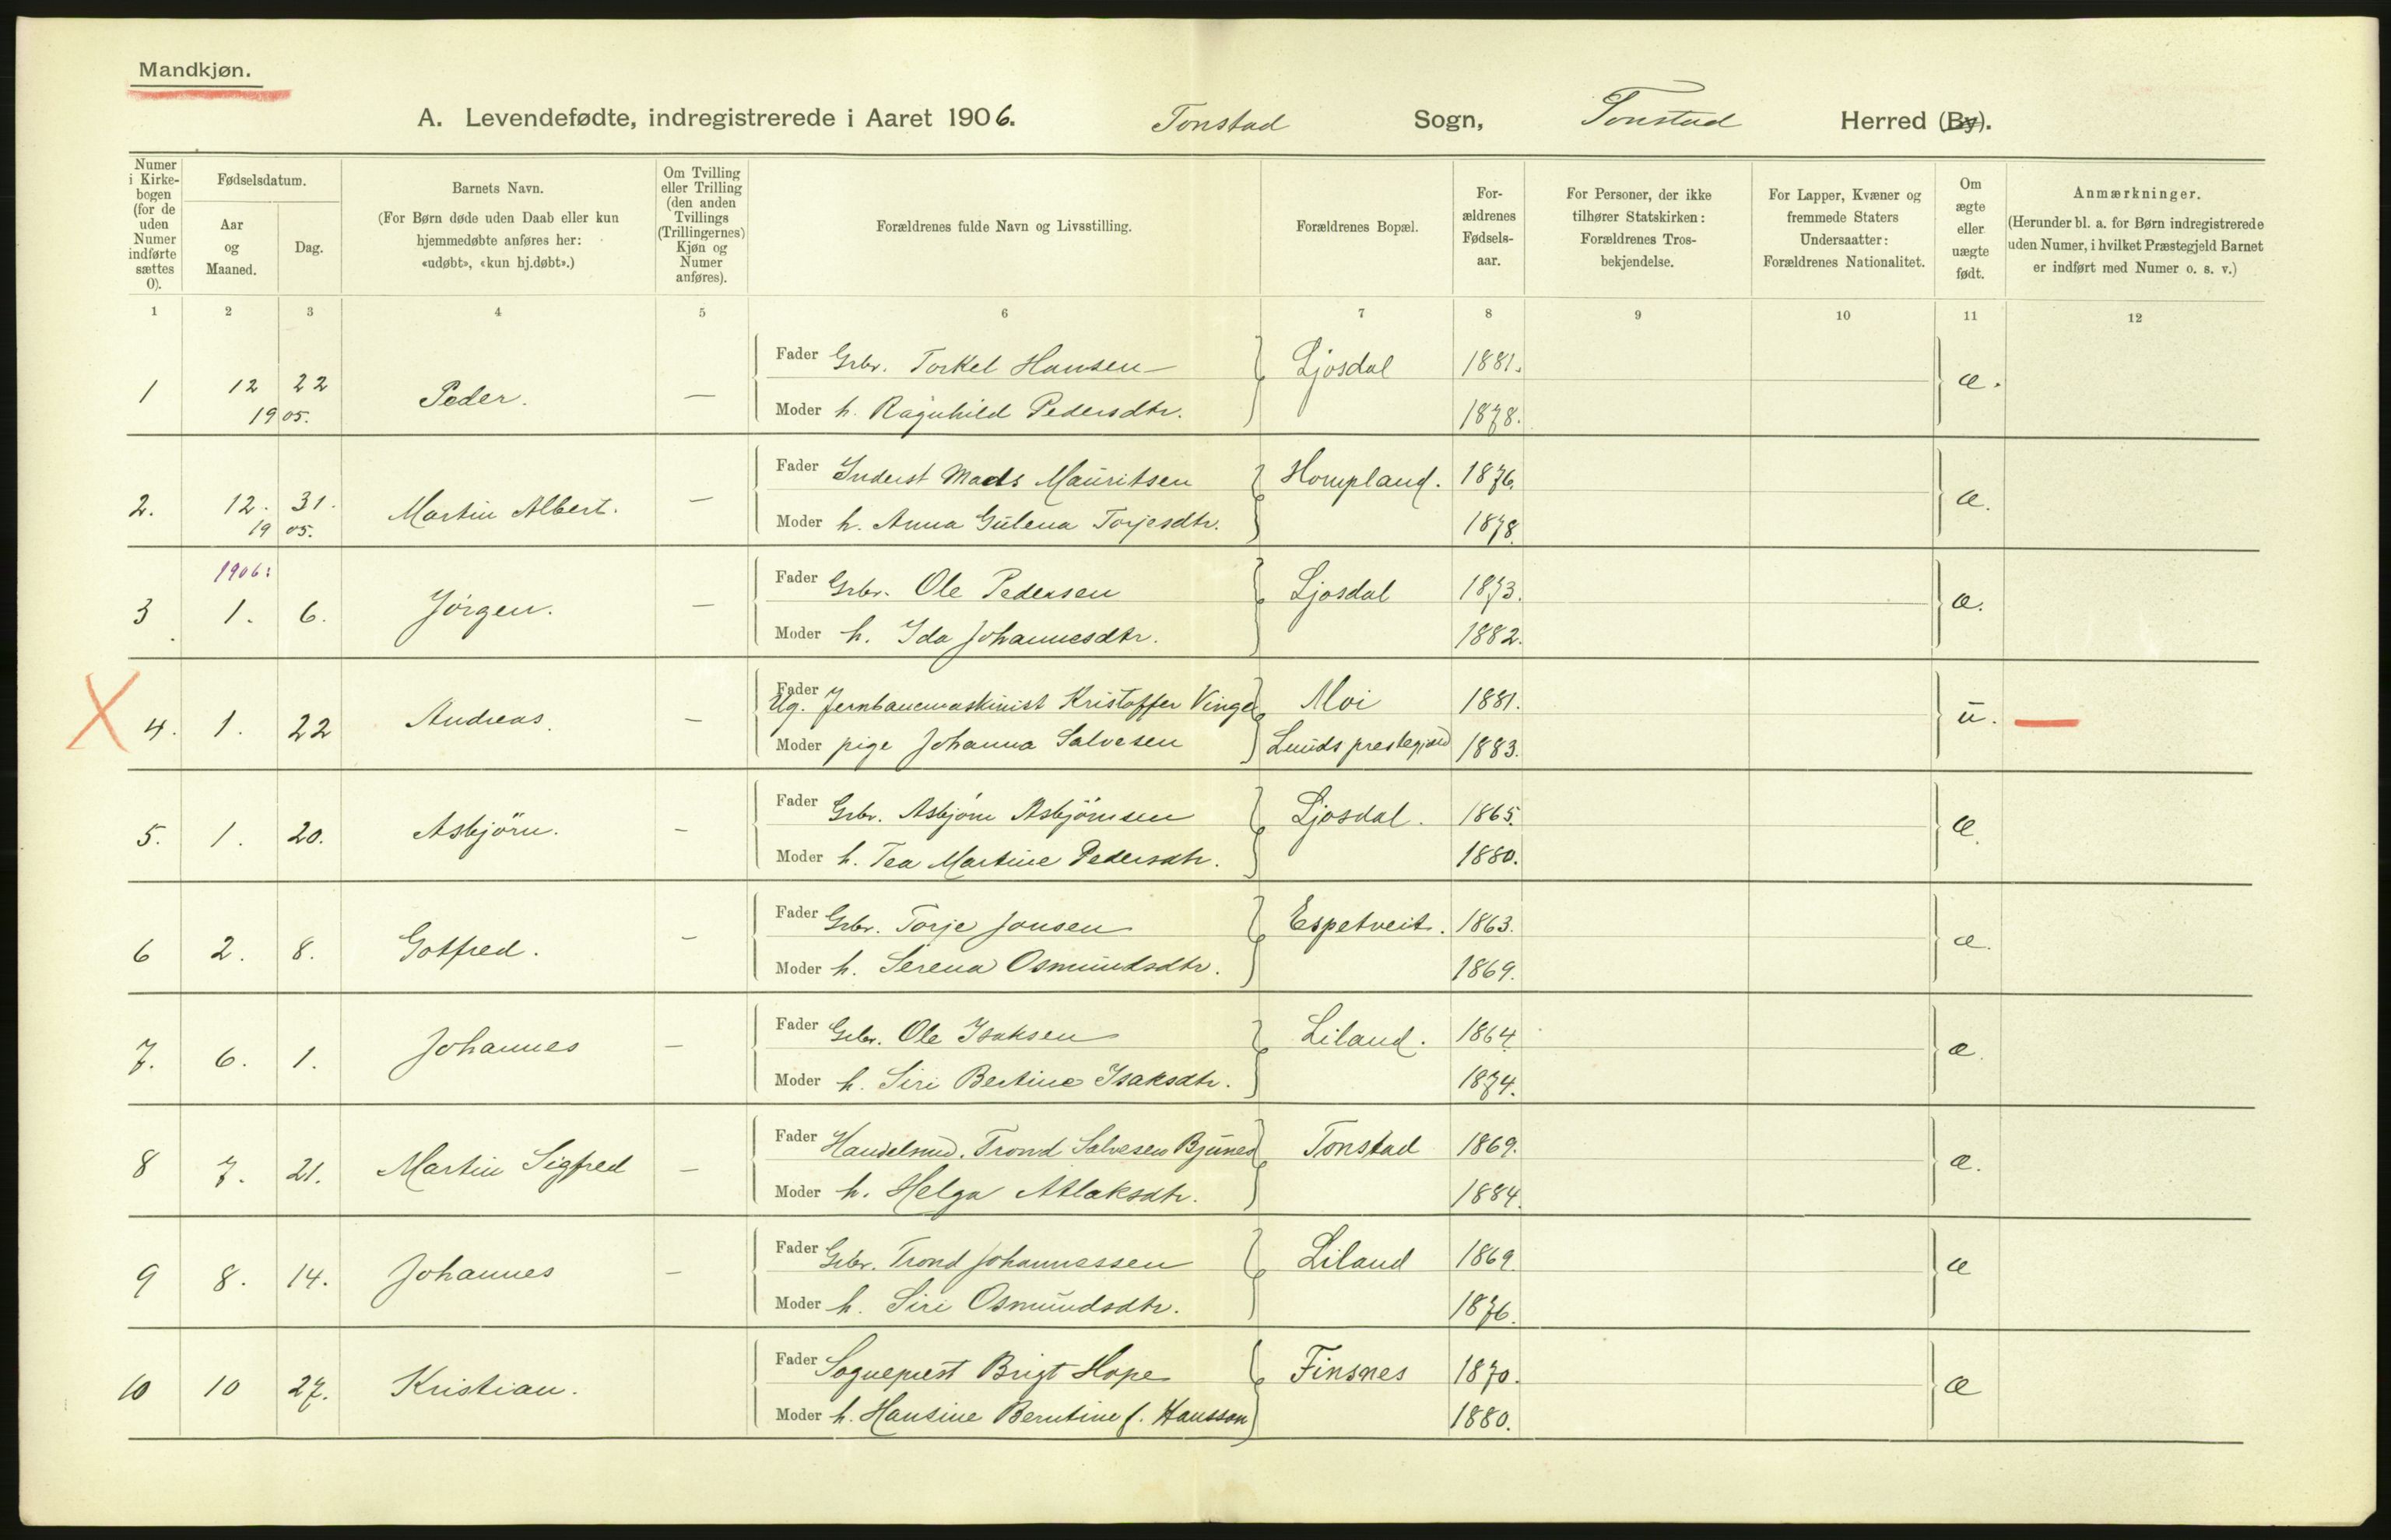 Mandkjøn.
A. Levendefødte, indregistrerede i Aaret 1906. Tonstad Sogn, Tonstad Herred (By).
Numer i Kirkebogen (for de uden Numer indførte sættes 0).
Fødselsdatum.
Aar og Maaned.
Dag.
Barnets Navn.
(For Børn døde uden Daab eller kun hjemmedøbte anføres her: «udøbt», «kun hj.døbt».)
Om Tvilling eller Trilling (den anden Tvillings (Trillingernes) Kjøn og Numer anføres).
Forældrenes fulde Navn og Livsstilling.
Forældrenes Bopæl.
For-ældrenes Fødsels-aar.
For Personer, der ikke tilhører Statskirken: Forældrenes Tros-bekjendelse.
For Lapper, Kvæner og fremmede Staters Undersaatter: Forældrenes Nationalitet.
Om ægte eller uægte født.
Anmærkninger.
(Herunder bl. a. for Børn indregistrerede uden Numer, i hvilket Præstegjeld Barnet er indført med Numer o. s. v.)
1 2 3 4 5 6 7 8 9 10 11 12
1 12 22 1905. Peder. — Fader Grbr. Torkel Hansen Ljosdal 1881. æ.
Moder h. Ragnhild Pedersdtr. 1878.
2. 12. 31. 1905. Martin Albert. — Fader Inderst Mads Mauritsen Hompland. 1876. æ.
Moder h. Anna Gulena Torjesdtr. 1878.
1906:
3 1. 6. Jørgen. — Fader Grbr. Ole Pedersen Ljosdal 1873. æ.
Moder h. Ida Johannesdtr. 1882.
X 4. 1. 22 Andreas. — Fader Ug. Jernbanemaskinist Kristoffer Vinge Moi 1881. u. —
Moder pige Johanna Salvesen Lunds prestegjæld 1883.
5. 1. 20. Asbjörn. — Fader Grbr. Asbjörn Asbjörnsen Ljosdal. 1865. æ.
Moder h. Tea Martine Pedersdtr. 1880.
6 2. 8. Gotfred. — Fader Grbr. Torje Jonsen Espetveit. 1863. æ.
Moder h. Serena Osmundsdtr. 1869.
7. 6. 1. Johannes — Fader Grbr. Ole Isaksen Liland. 1864. æ.
Moder h. Siri Bertine Isaksdtr. 1874.
8 7. 21. Martin Sigfred — Fader Handelsmd. Trond Salvesen Bjunes Tonstad 1869. æ.
Moder h. Helga Atlaksdtr. 1884.
9 8. 14. Johannes — Fader Grbr. Trond Johannessen Liland 1869. æ
Moder h. Siri Osmundsdtr. 1876.
10 10 27. Kristian. Fader Sogneprest Brigt Hope Finsnes 1870. æ
Moder h. Hansine Berntine f. Hansson 1880.